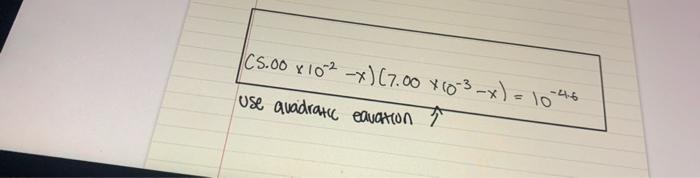 (5.00 x 10⁻² -x)(7.00 x10⁻³-x) = 10⁻⁴·⁶
use quadratic equation ↑